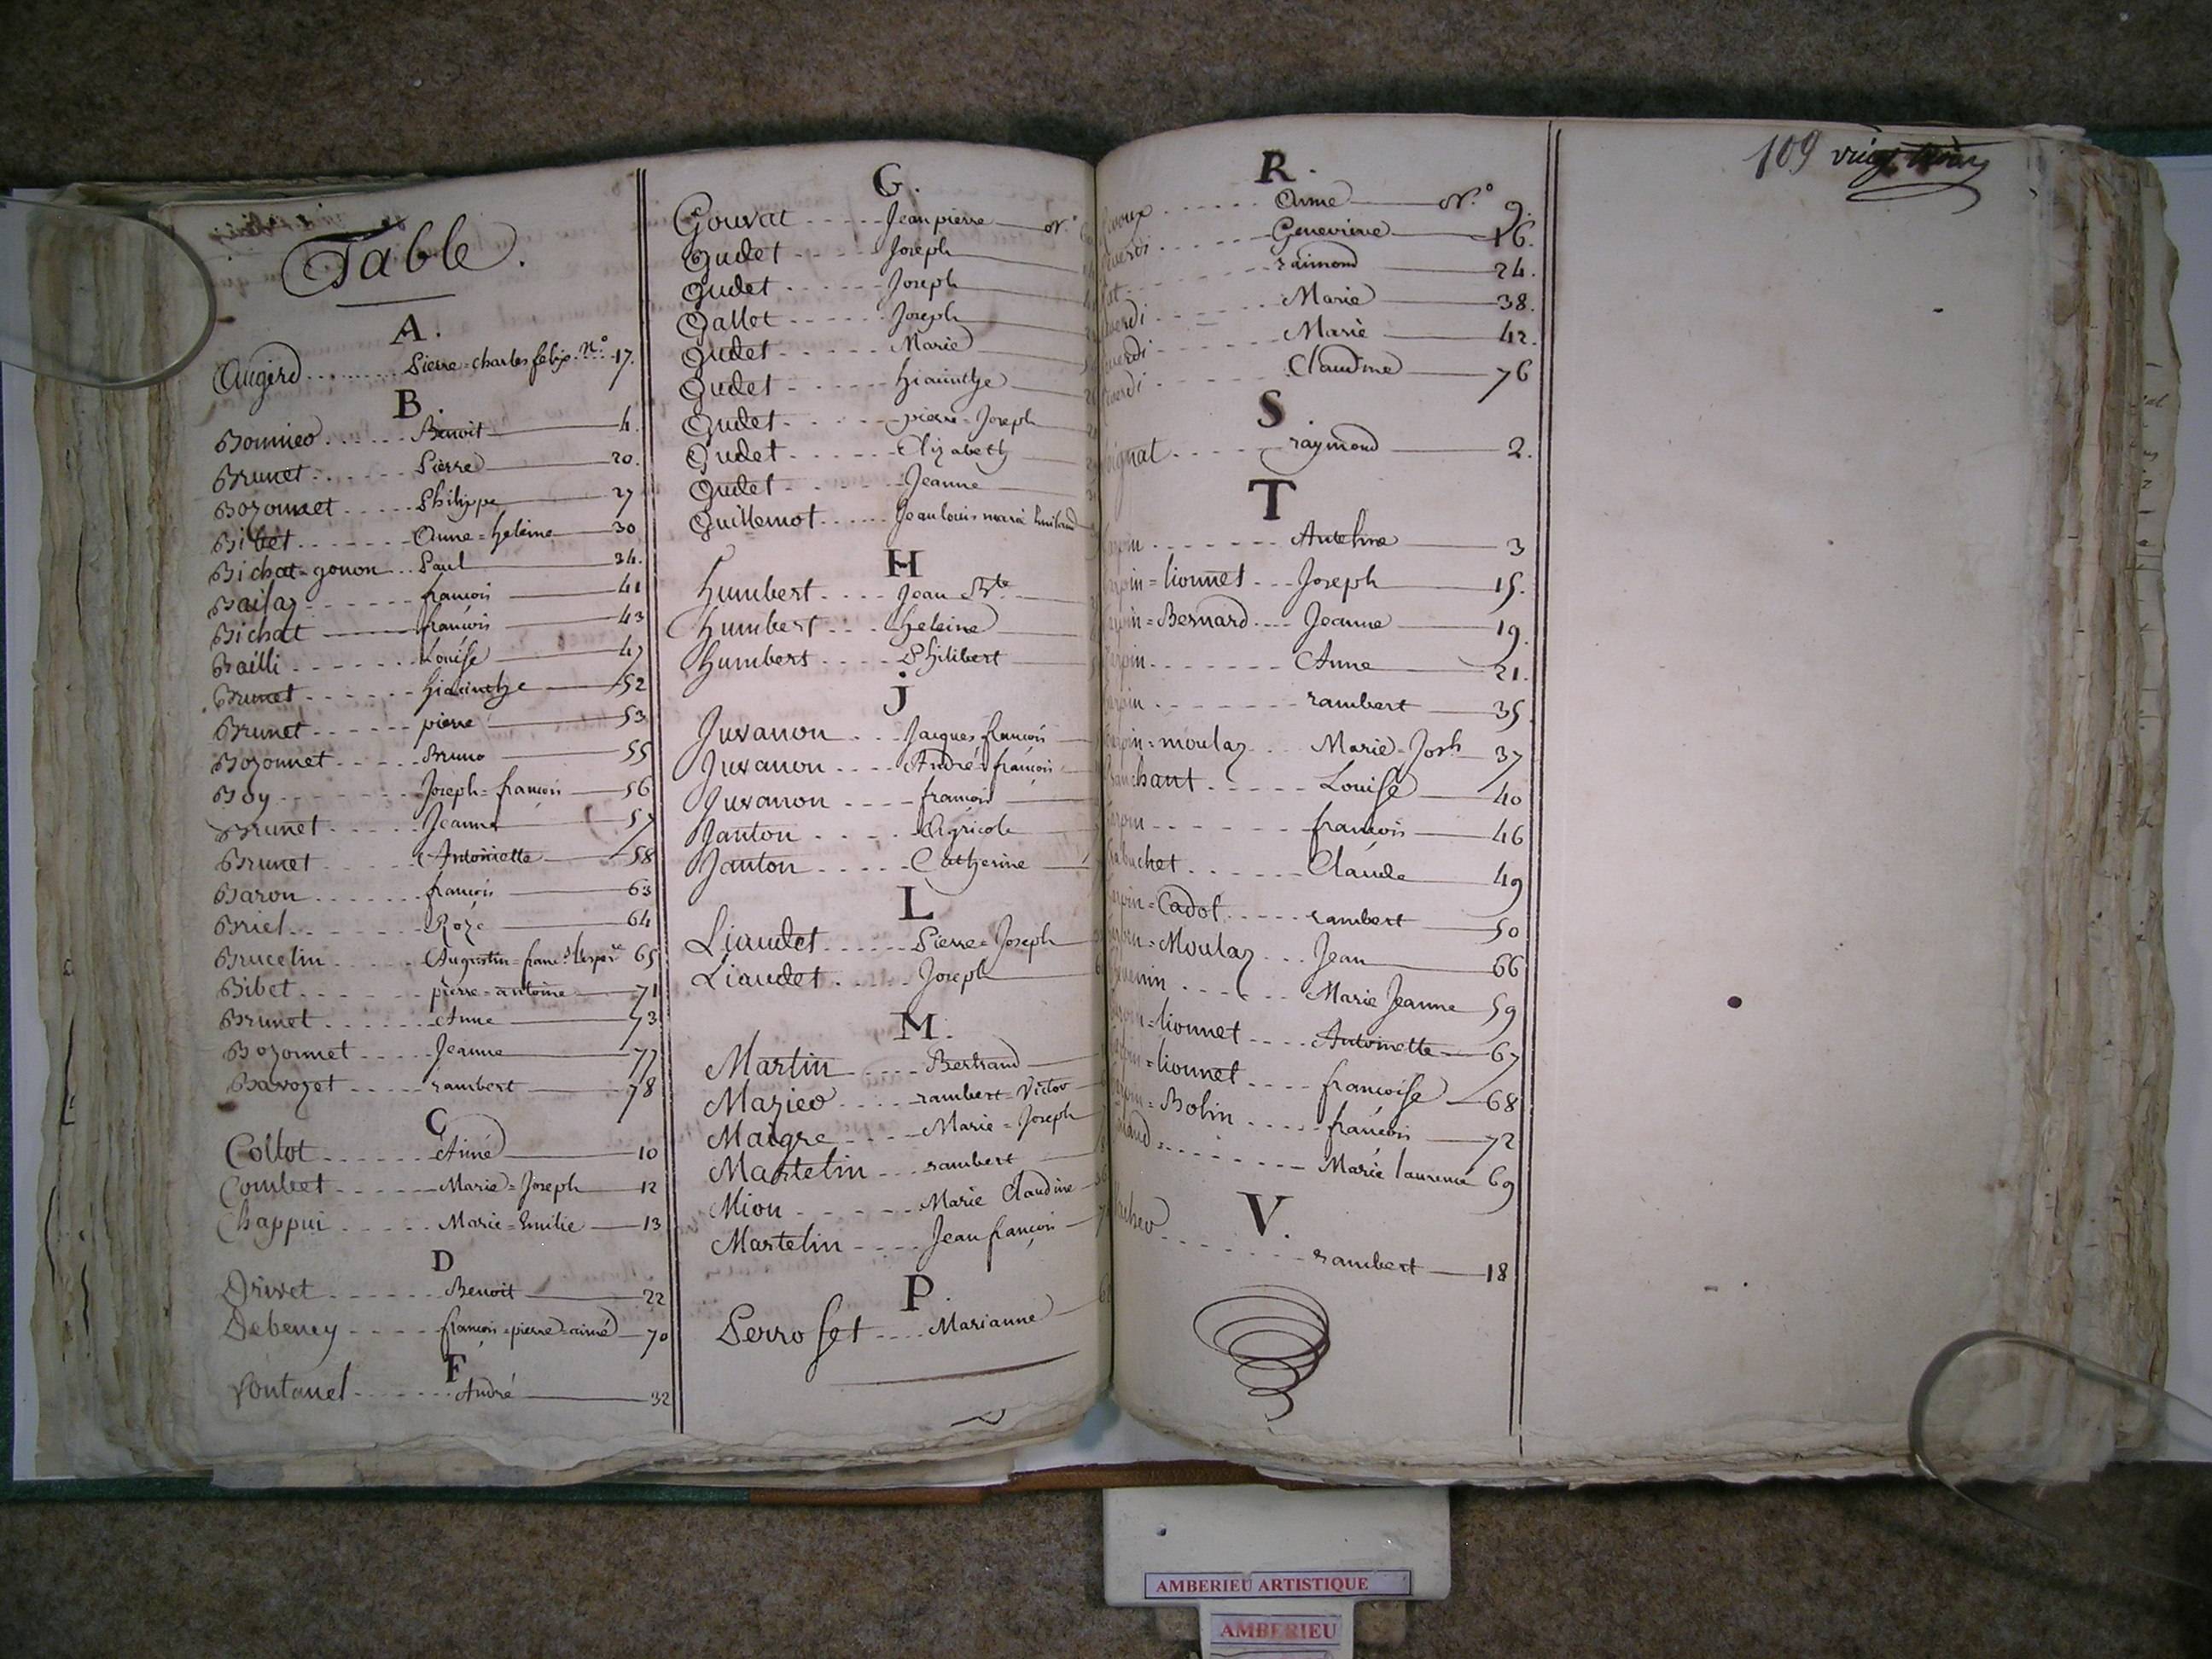 Table.
A.
Augerd ........ Pierre=charles felix. N.º 17.
B.
Bonnier ...... Benoit 4.
Brunet ...... Pierre 20.
Bozonnet ..... Philippe 27
Bibet ....... Anne=heleine 30
Bichat=gonon .. Paul 34.
françois 41
Bichat françois 43
Bailli ....... Louise 47
Brunet ...... hiacinthe 52
Brunet ...... pierre 53
Bozonnet ..... Bruno 55
Boy ........ Joseph=françois 56
Brunet ..... Jeanne 57
Brunet ..... Antoinette 58
Baron ....... françois 63
Briel ....... Roze 64
Brucelin ..... Augustin= 65
Bibet ....... pierre=antoine 71
Brunet ...... Anne 73
Bozonnet ..... Jeanne 77
Bavozet ..... rambert 78
C
Collot ...... Aimé 10
Combet ...... Marie=Joseph 12
Chappui ..... Marie=Emilie 13
D
Drivet ...... Benoit 22
Debeney .... françois=pierre=aimé 70
F
Fontanel ....... André 32
G.
Gouvat ..... Jean pierre N.º
Gudet ..... Joseph
Gudet ...... Joseph
Gallet ...... Joseph
Gudet ...... Marie
Gudet ...... hiacinthe
Gudet ...... pierre=Joseph
Gudet ...... Elizabeth
Gudet ...... Jeanne
Guillemot ...... Jean louis marie
H
humbert .... Jean Bte.
humbert ... heleine
humbert .... Philibert
J
Juvanon .. Jacques françois
Juvanon .... André=françois
Juvanon .... françois
Janton ..... Agricole
Janton ..... Catherine
L
Liaudet ...... Pierre=Joseph
Liaudet ..... Joseph
M.
Martin .... Bertrand
Mazier .... rambert=Victor
Maigre .... Marie=Joseph
Martelin ... rambert
Mion ...... Marie Claudine
Martelin .... Jean françois
P.
Perroset .... Marianne
R.
Anne N.º 9.
Genevieve 16.
raimond 24.
Marie 38.
Marie 42.
Claudine 76
S
raymond 2.
T
Anthelme 3
=lionnet ... Joseph 15.
=Bernard .... Jeanne 19.
Anne 21.
rambert 35
=moulaz ... Marie=Josh 37
Louise 40
françois 46
Claude 49
=Cadot ..... rambert 50
=Moulaz ... Jean 66
Marie Jeanne 59
=lionnet .... Antoinette 67
=lionnet .... françoise 68
=Bolin ..... françois 72
Marie laurence 69
V.
rambert 18
109
AMBERIEU ARTISTIQUE
AMBERIEU